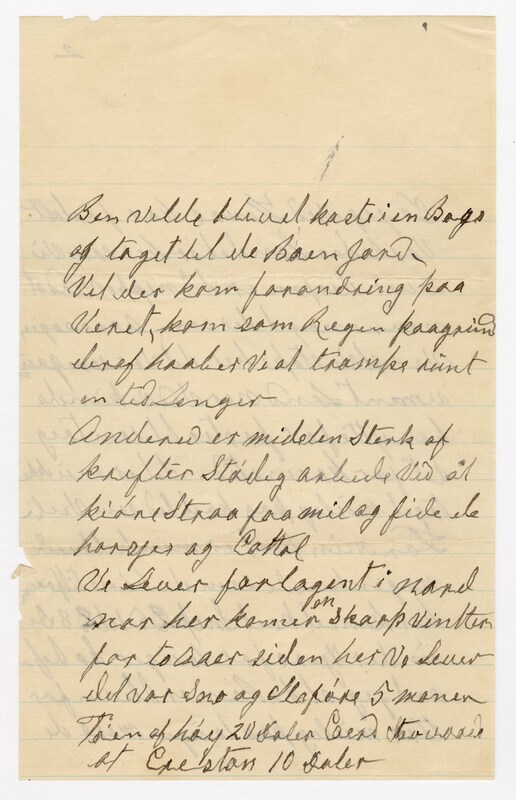 Ben vilde blevel kaste i en Bogs
og taget til de Baen Jord
Vel der kom forandring paa
Veret, kom som Regen paagrund
deraf haaber Ve at trampe runt
en tid Lenger
Andered er midelen Sterk af
krefter Stødeg arbede Ved at
kiøre Straa paa mil og fide de
horsjes og Cattol
Ve Lever forlagent i nord
nor her komer en Skarp Vintter
for to Aaer siden her Ve Lever
det var Sno og Slaføre 5 maner
Toen af høy 20 Daler Caerd
at Creston 10 Daler